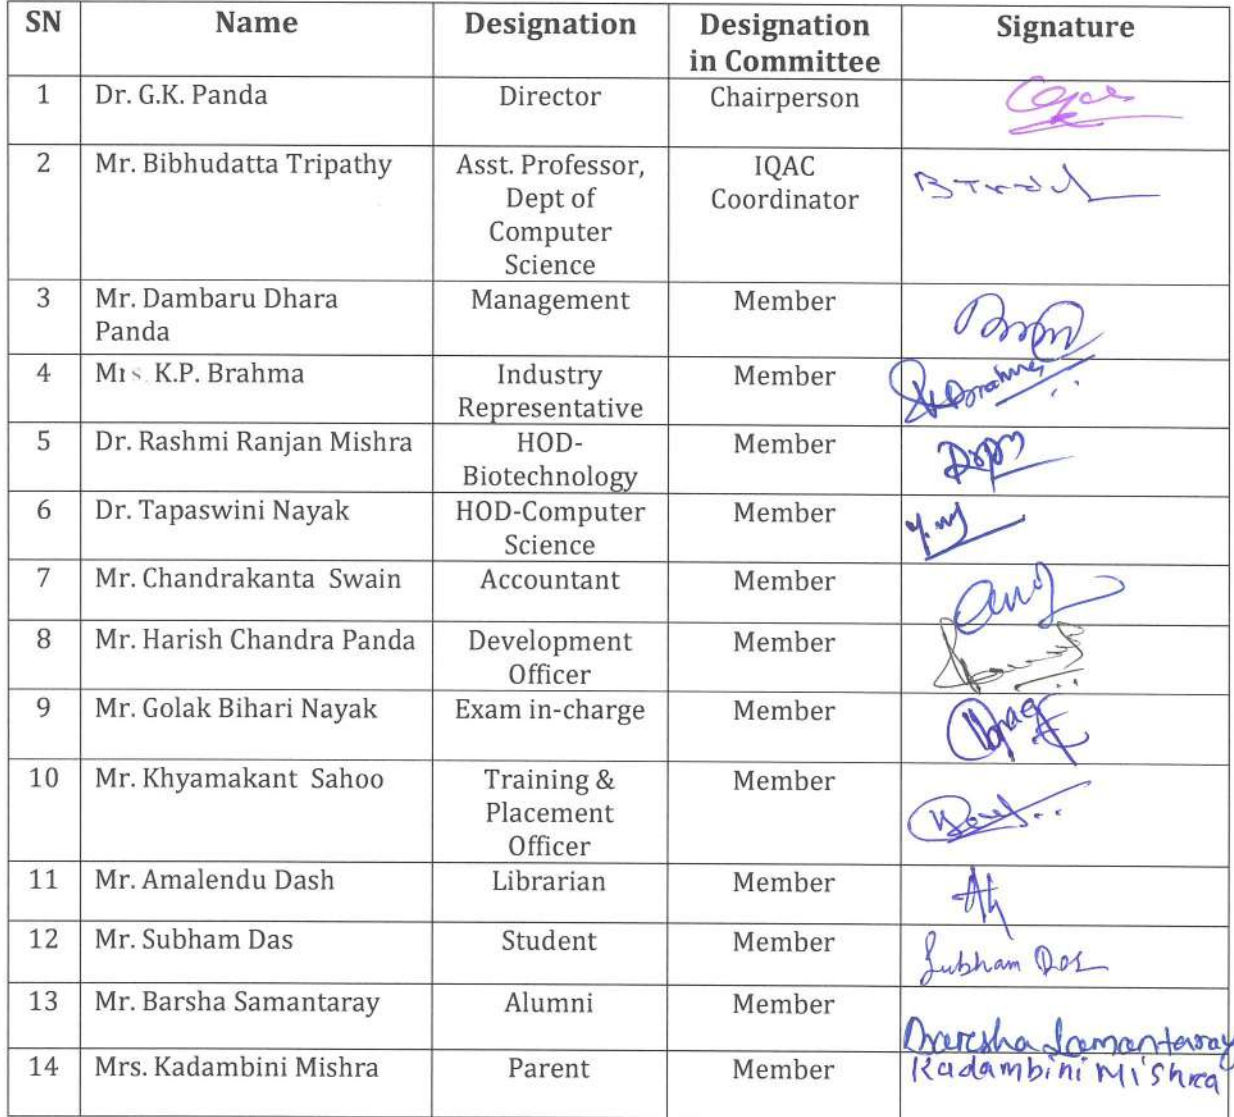 SN Name Designation Designation Signature
in Committee
1 Dr. G.K. Panda Director Chairperson
2 Mr. Bibhudatta Tripathy Asst. Professor, IQAC
Dept of Coordinator
Computer
Science
3 Mr. Dambaru Dhara Management Member
Panda
4 Mrs. K.P. Brahma Industry Member
Representative
5 Dr. Rashmi Ranjan Mishra HOD- Member
Biotechnology
6 Dr. Tapaswini Nayak HOD-Computer Member
Science
7 Mr. Chandrakanta Swain Accountant Member
8 Mr. Harish Chandra Panda Development Member
Officer
9 Mr. Golak Bihari Nayak Exam in-charge Member
10 Mr. Khyamakant Sahoo Training & Member
Placement
Officer
11 Mr. Amalendu Dash Librarian Member
12 Mr. Subham Das Student Member
Subham Das
13 Mr. Barsha Samantaray Alumni Member
Barsha Samantaray
14 Mrs. Kadambini Mishra Parent Member Kadambini Mishra